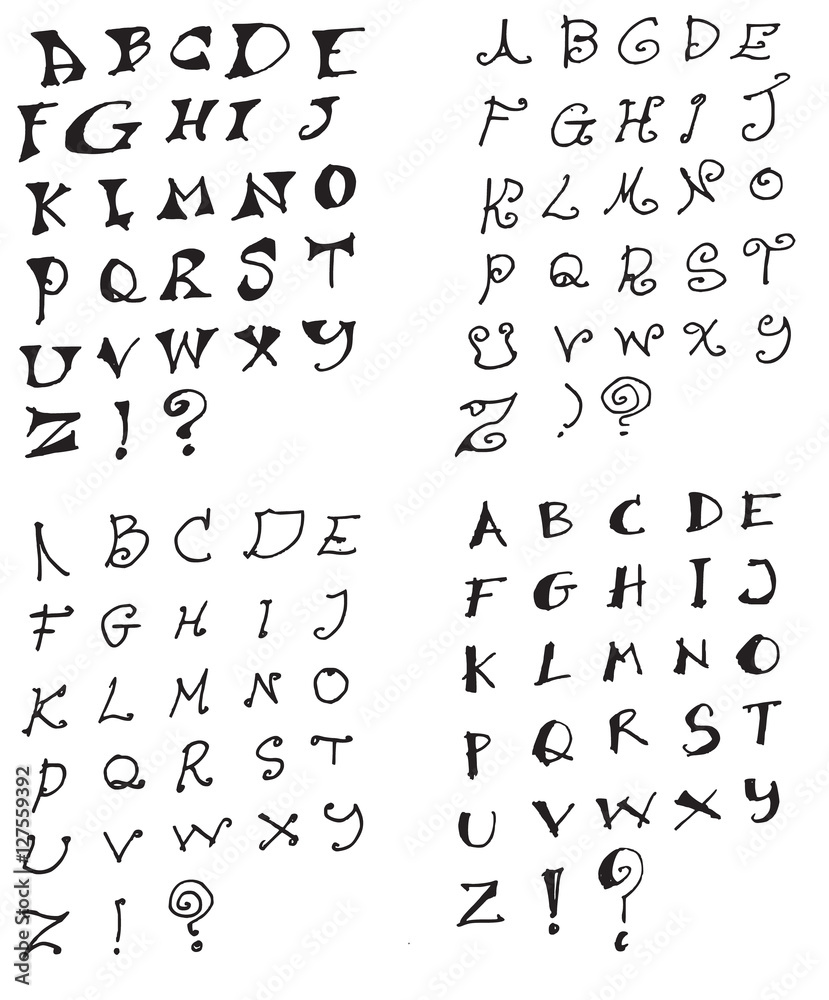 A B C D E
F G H I J
K L M N O
P Q R S T
U V W X Y
Z ! ?
A B C D E
F G H I J
K L M N O
P Q R S T
U V W X Y
Z ) ?
A B C D E
F G H I J
K L M N O
P Q R S T
U V W X Y
Z ! ?
A B C D E
F G H I J
K L M N O
P Q R S T
U V W X Y
Z ! ?
Adobe Stock | #127559392